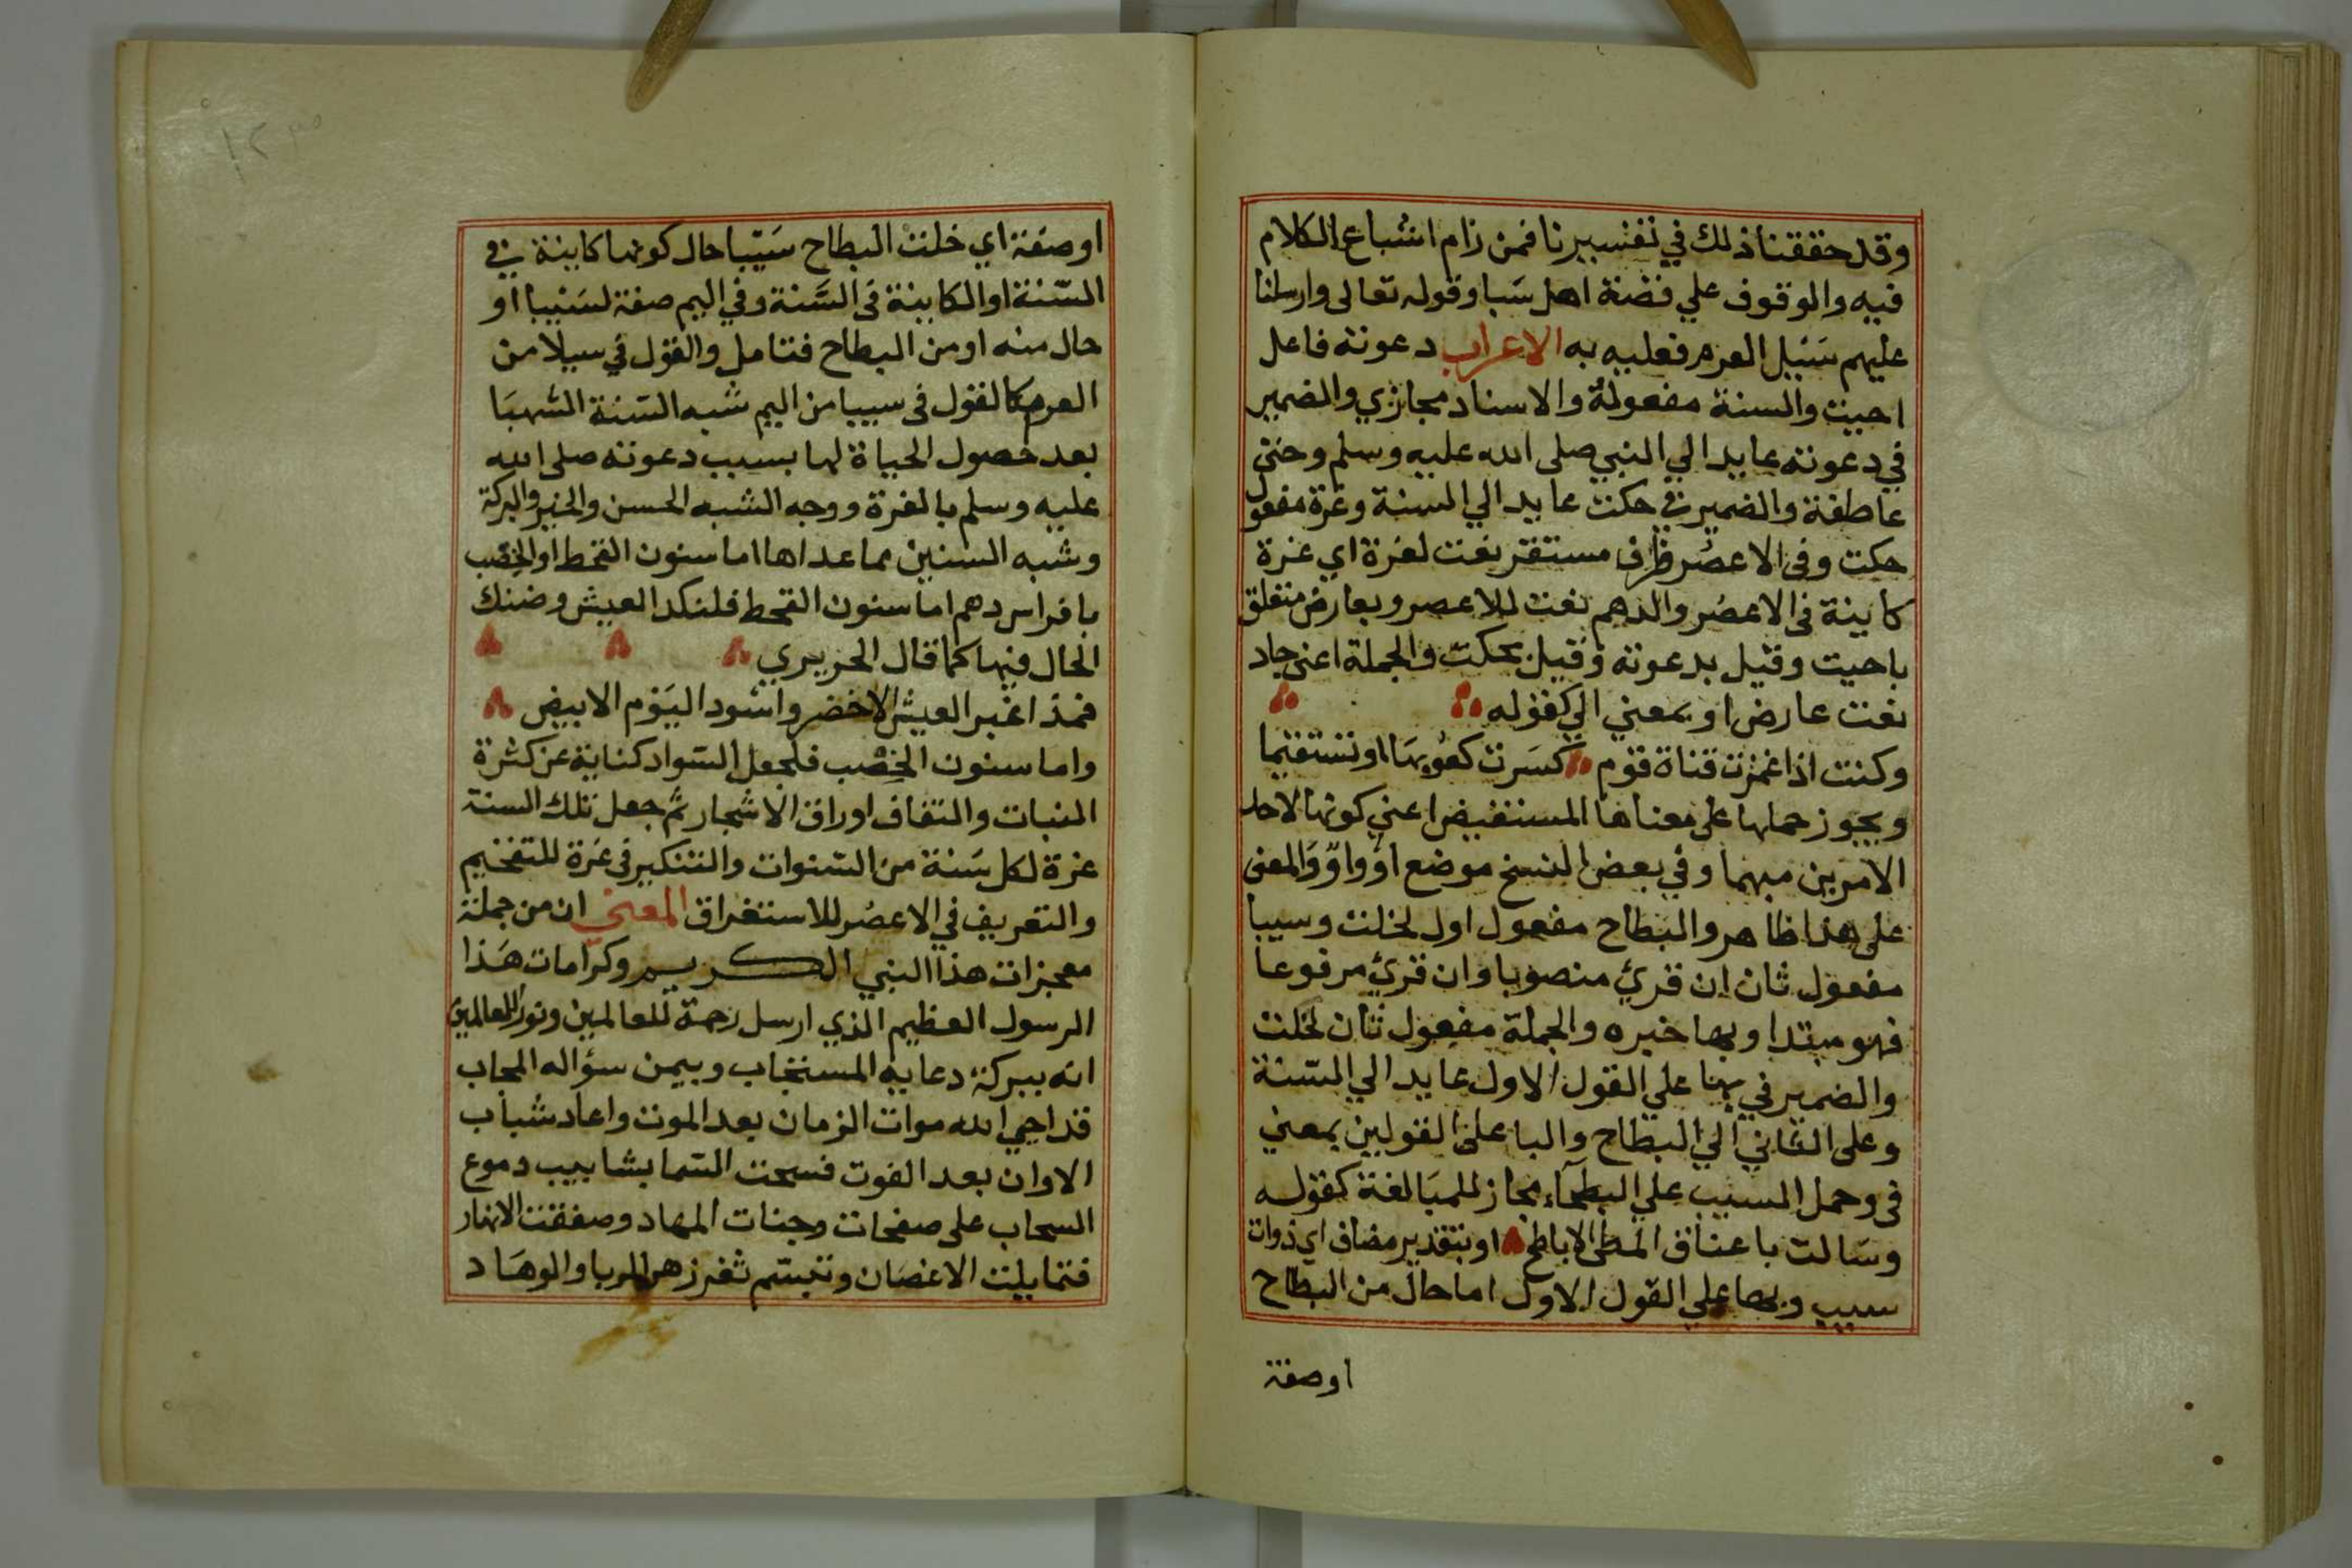 وقد حققنا ذلك في تفسيرنا فمن رام اشباع الكلام
فيه والوقوف علي قصة اهل سَبا وقوله تعالى وارسلنا
عليهم سَيْل العرم فعليه به الاعراب دعوته فاعل
احيت والسنة مفعوله والاسناد مجازي والضمير
في دعوته عايد الي النبي صلى الله عليه وسلم وحتى
عاطفة والضمير في حكت عايد الي السنة وغرة مفعول
حكت وفى الاعصُر ظرف مستقر نعت لغرة اي غرة
كاينة فى الاعصُر والدهم نعت للاعصر وبعارض متعلق
باحيت وقيل بدعوته وقيل بحكت والجملة اعنى جاد
نعت عارض او بمعني الي كقوله
وكنت اذا غمزت قناة قوم كسَرت كعوبهَا او تستقيما
ويجوز حملها على معناها المستفيض اعني كونها لاحد
الامرين مبهما وفي بعض النسخ موضع او واوٌ وَالمعنى
على هذا ظاهر والبطاح مفعول اول لخلت وسيبا
مفعول ثان ان قرئ منصوبا وان قرئ مرفوعا
فهو مبتدا وبها خبره والجملة مفعول ثان لخلت
والضمير في بها علي القول الاول عايد الي السّنة
وعلى الثاني الي البطاح والبا على القولين بمعني
فى وحمل السيب علي البطحآء مجاز للمبَالغة كقوله
وسَالت باعناق المطى الاباطح او بتقدير مضاف اي ذوات
سيب وبها علي القول الاول اما حال من البطاح
اوصفة
اوصفة اي خلت البطاح سَيْبا حال كونها كاينة في
السّنة او الكاينة فى السَّنة وفي اليم صفة لسَيْبا او
حال منه او من البطاح فتامل والقول في سيلا من
العرم كالقول فى سيبا من اليم شبه السّنة الشهبَا
بعد حصول الحياة لها بسبب دعوته صلى الله
عليه وسلم بالغرة ووجه الشبه الحسن والخير والبركة
وشبه السنين مما عداها اما سنون القحط او الخِصب
بافراس دهم اما سنون القحط فلنكد العيش وضنك
الحال فيها كما قال الحريري
فمذ اغبر العيش الاخضر واسْود اليَوْم الابيض
واما سنون الخِصْب فلجعل السّواد كناية عن كثرة
النبات والتفاف اوراق الاشجار ثم جعل تلك السنة
غرة لكل سَنة من السّنوات والتنكير فى غرة للتفخيم
والتعريف في الاعصُر للاستغراق المعني ان من جملة
معجزات هذا النبي الكريم وكرامات هَذا
الرسول العظيم الذي ارسل رحمة للعالمين ونورا للعالمين
انه ببركة دعايه المستجاب وبيمن سؤاله المجاب
قد احيي الله موات الزمان بعد الموت واعاد شباب
الاوان بعد الفوت فسحت السّما بشابيب دموع
السحاب على صفحات وجنات المهاد وصفقت الانهار
فتمايلت الاغصَان وتبسّم ثغر زهر الربا والوهَاد